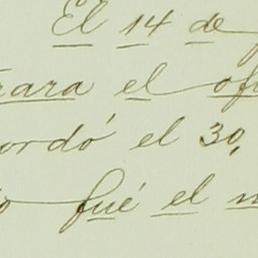 El 14 de
rara el of
ordó el 30,
fué el